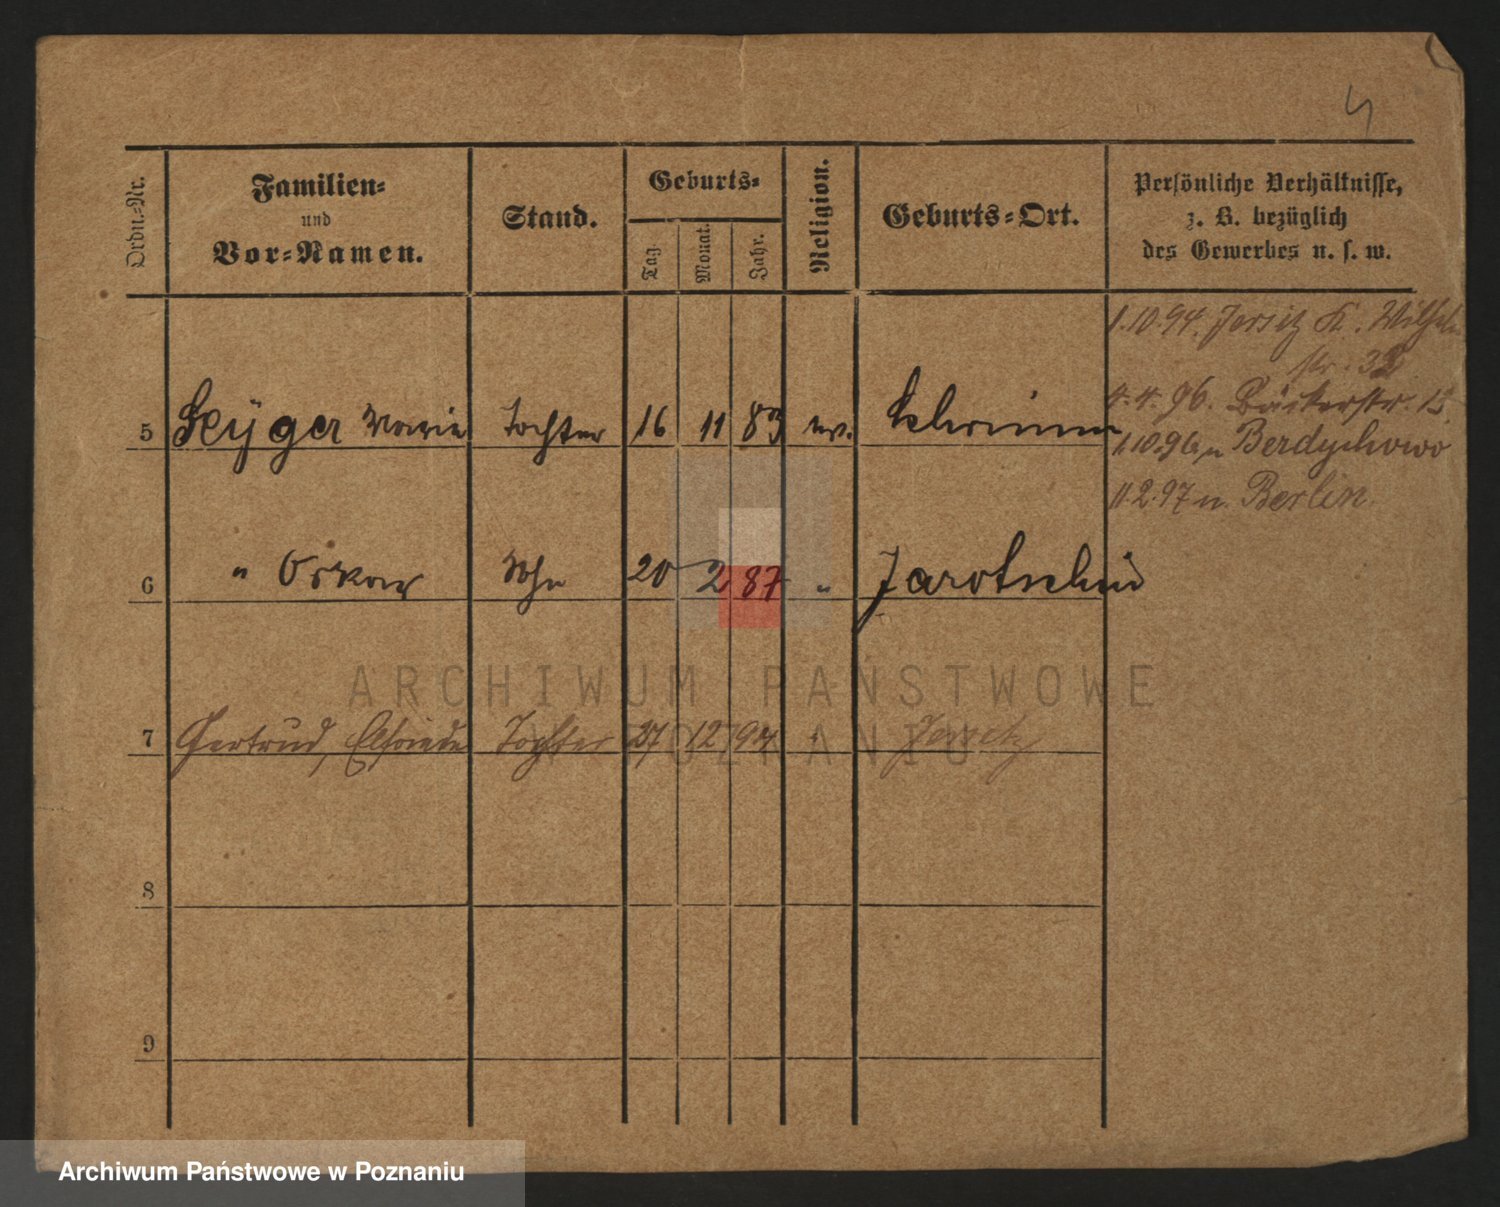 4
Ordn.-Nr.
Familien-
und
Vor-Namen.
Stand.
Geburts-
Tag.
Monat.
Jahr.
Religion.
Geburts-Ort.
Persönliche Verhältnisse,
z. B. bezüglich
des Gewerbes u. s. w.
1.10.94. Jersitz K. Wilhelm
str. 32
4.4.96. Bäckerstr. 15
5 Marie Tochter 16 11 83 ev. Schrimm
1.10.96 n Berdychowo
11.2.97 n. Berlin.
6 " Oskar Sohn 20 2 87 " Jarotschin
ARCHIWUM PAŃSTWOWE
W POZNANIU
7 Gertrud, Elfriede Tochter 27 12 94 " Jersitz
8
9
Archiwum Państwowe w Poznaniu